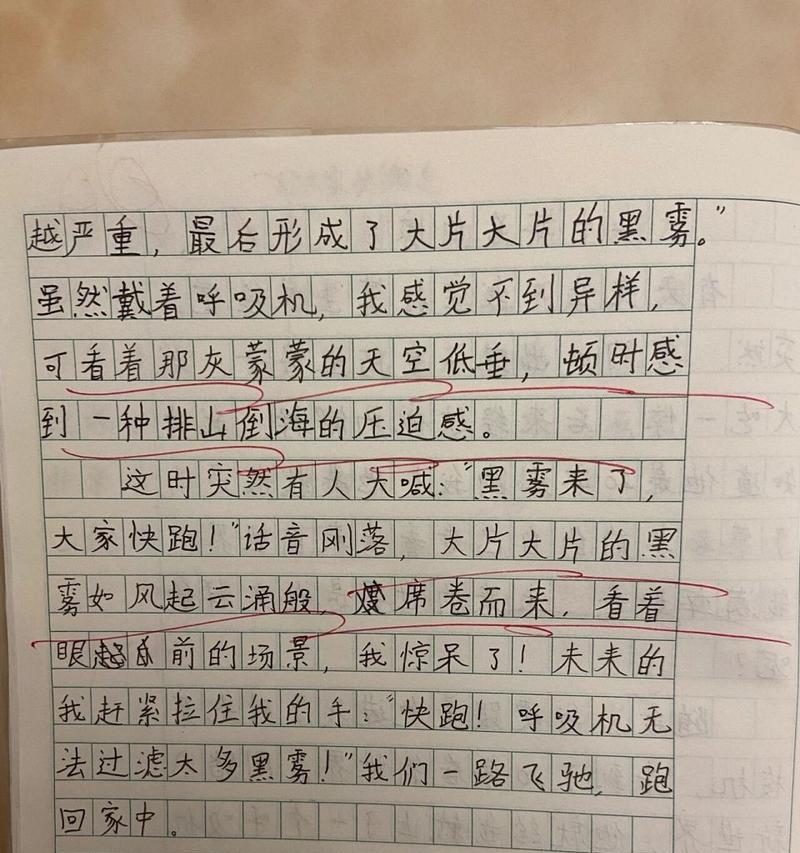 越严重，最后形成了大片大片的黑雾。”
虽然戴着呼吸机，我感觉不到异样，
可看着那灰蒙蒙的天空低垂，顿时感
到一种排山倒海的压迫感。
这时突然有人大喊：“黑雾来了，
大家快跑！”话音刚落，大片大片的黑
雾如风起云涌般，席卷而来，看着
眼前的场景，我惊呆了！未来的
我赶紧拉住我的手：“快跑！呼吸机无
法过滤太多黑雾！”我们一路飞驰，跑
回家中。